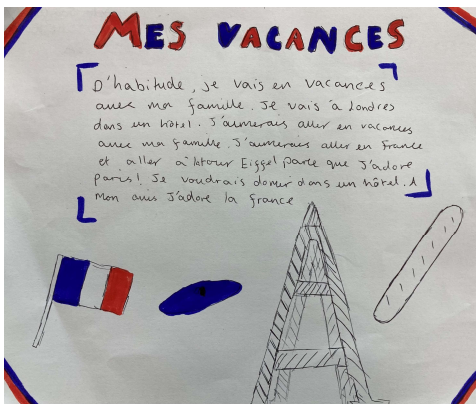 MES VACANCES
D'habitude, je vais en vacances
avec ma famille. Je vais à Londres
dans un hôtel. J'aimerais aller en vacances
avec ma famille. J'aimerais aller en France
et aller à latour Eiggel parce que J'adore
paris! Je voudrais domir dans un hôtel. A
Mon avis J'adore la france